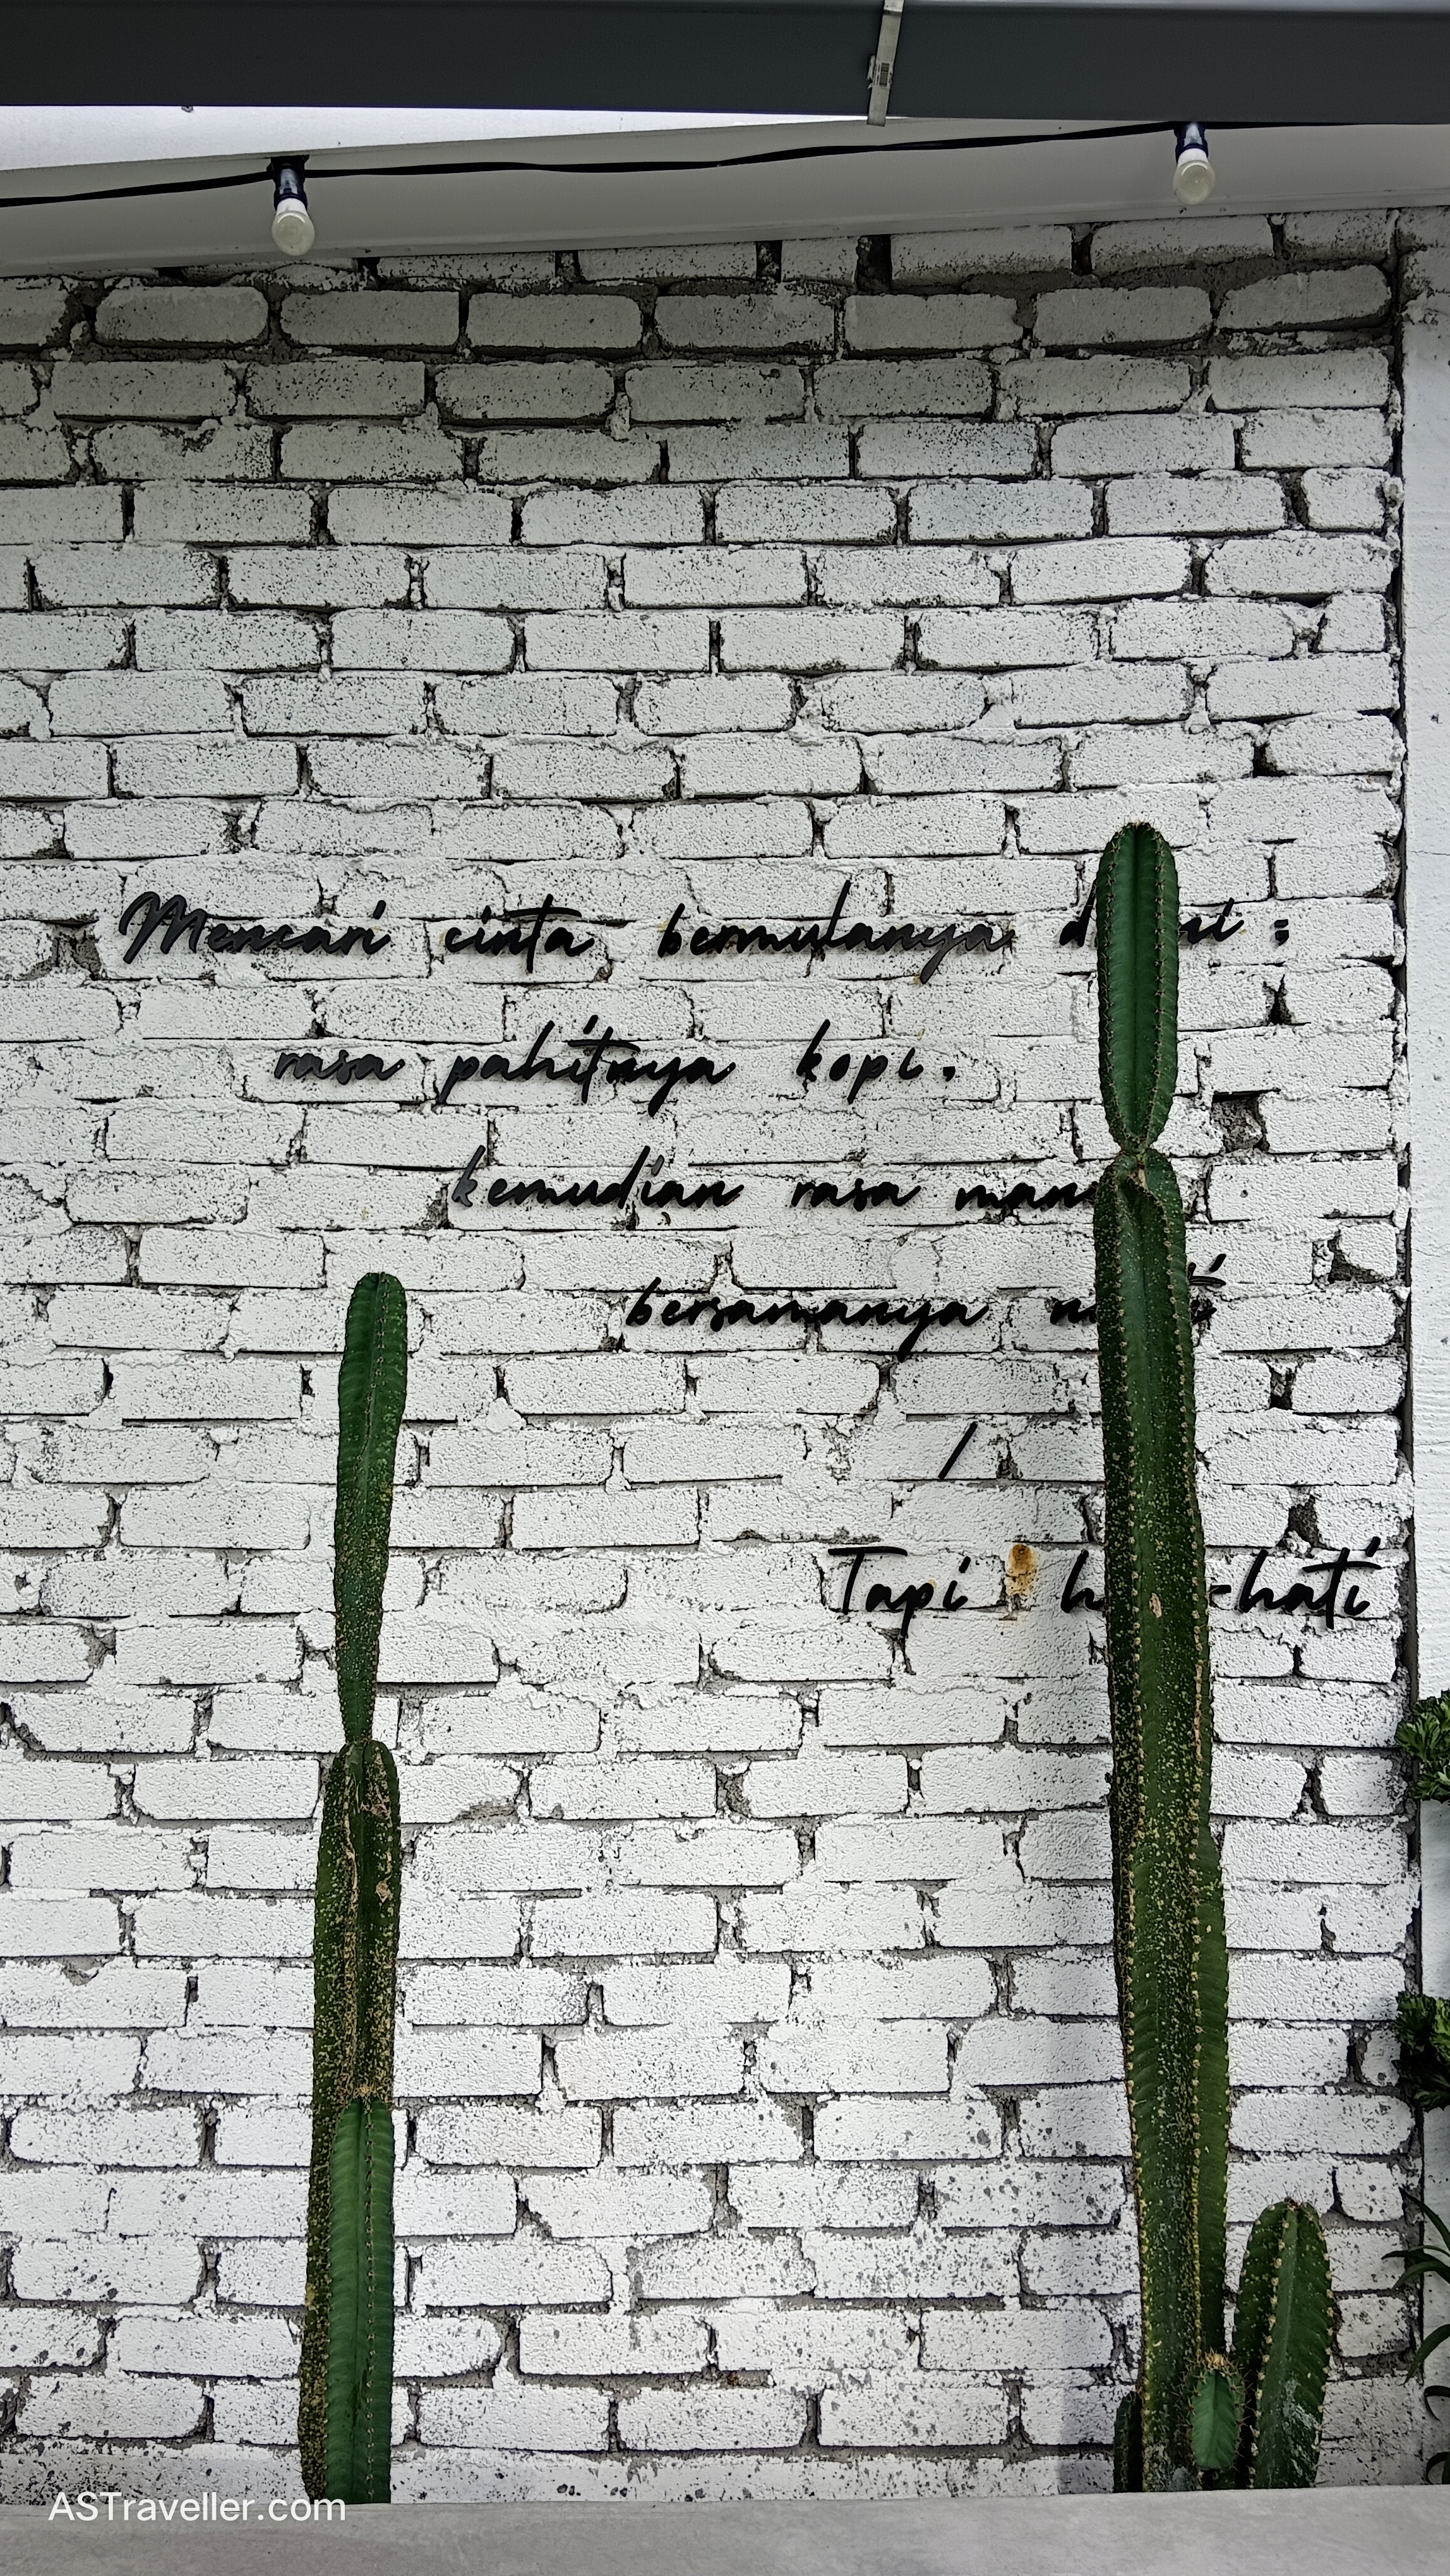 Mencari cinta bermulanya :
rasa pahitnya kopi.
kemudian rasa
bersamanya
/
Tapi -hati
ASTraveller.com